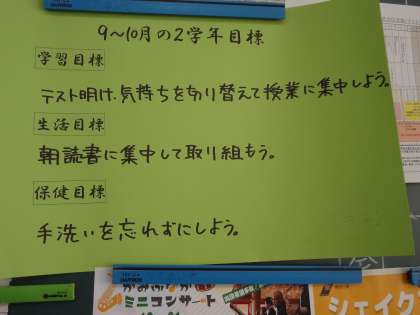 9〜10月の2学年目標
学習目標
テスト明け、気持ちを切り替えて授業に集中しよう。
生活目標
朝読書に集中して取り組もう。
保健目標
手洗いを忘れずにしよう。
ミニコンサート
シェイク